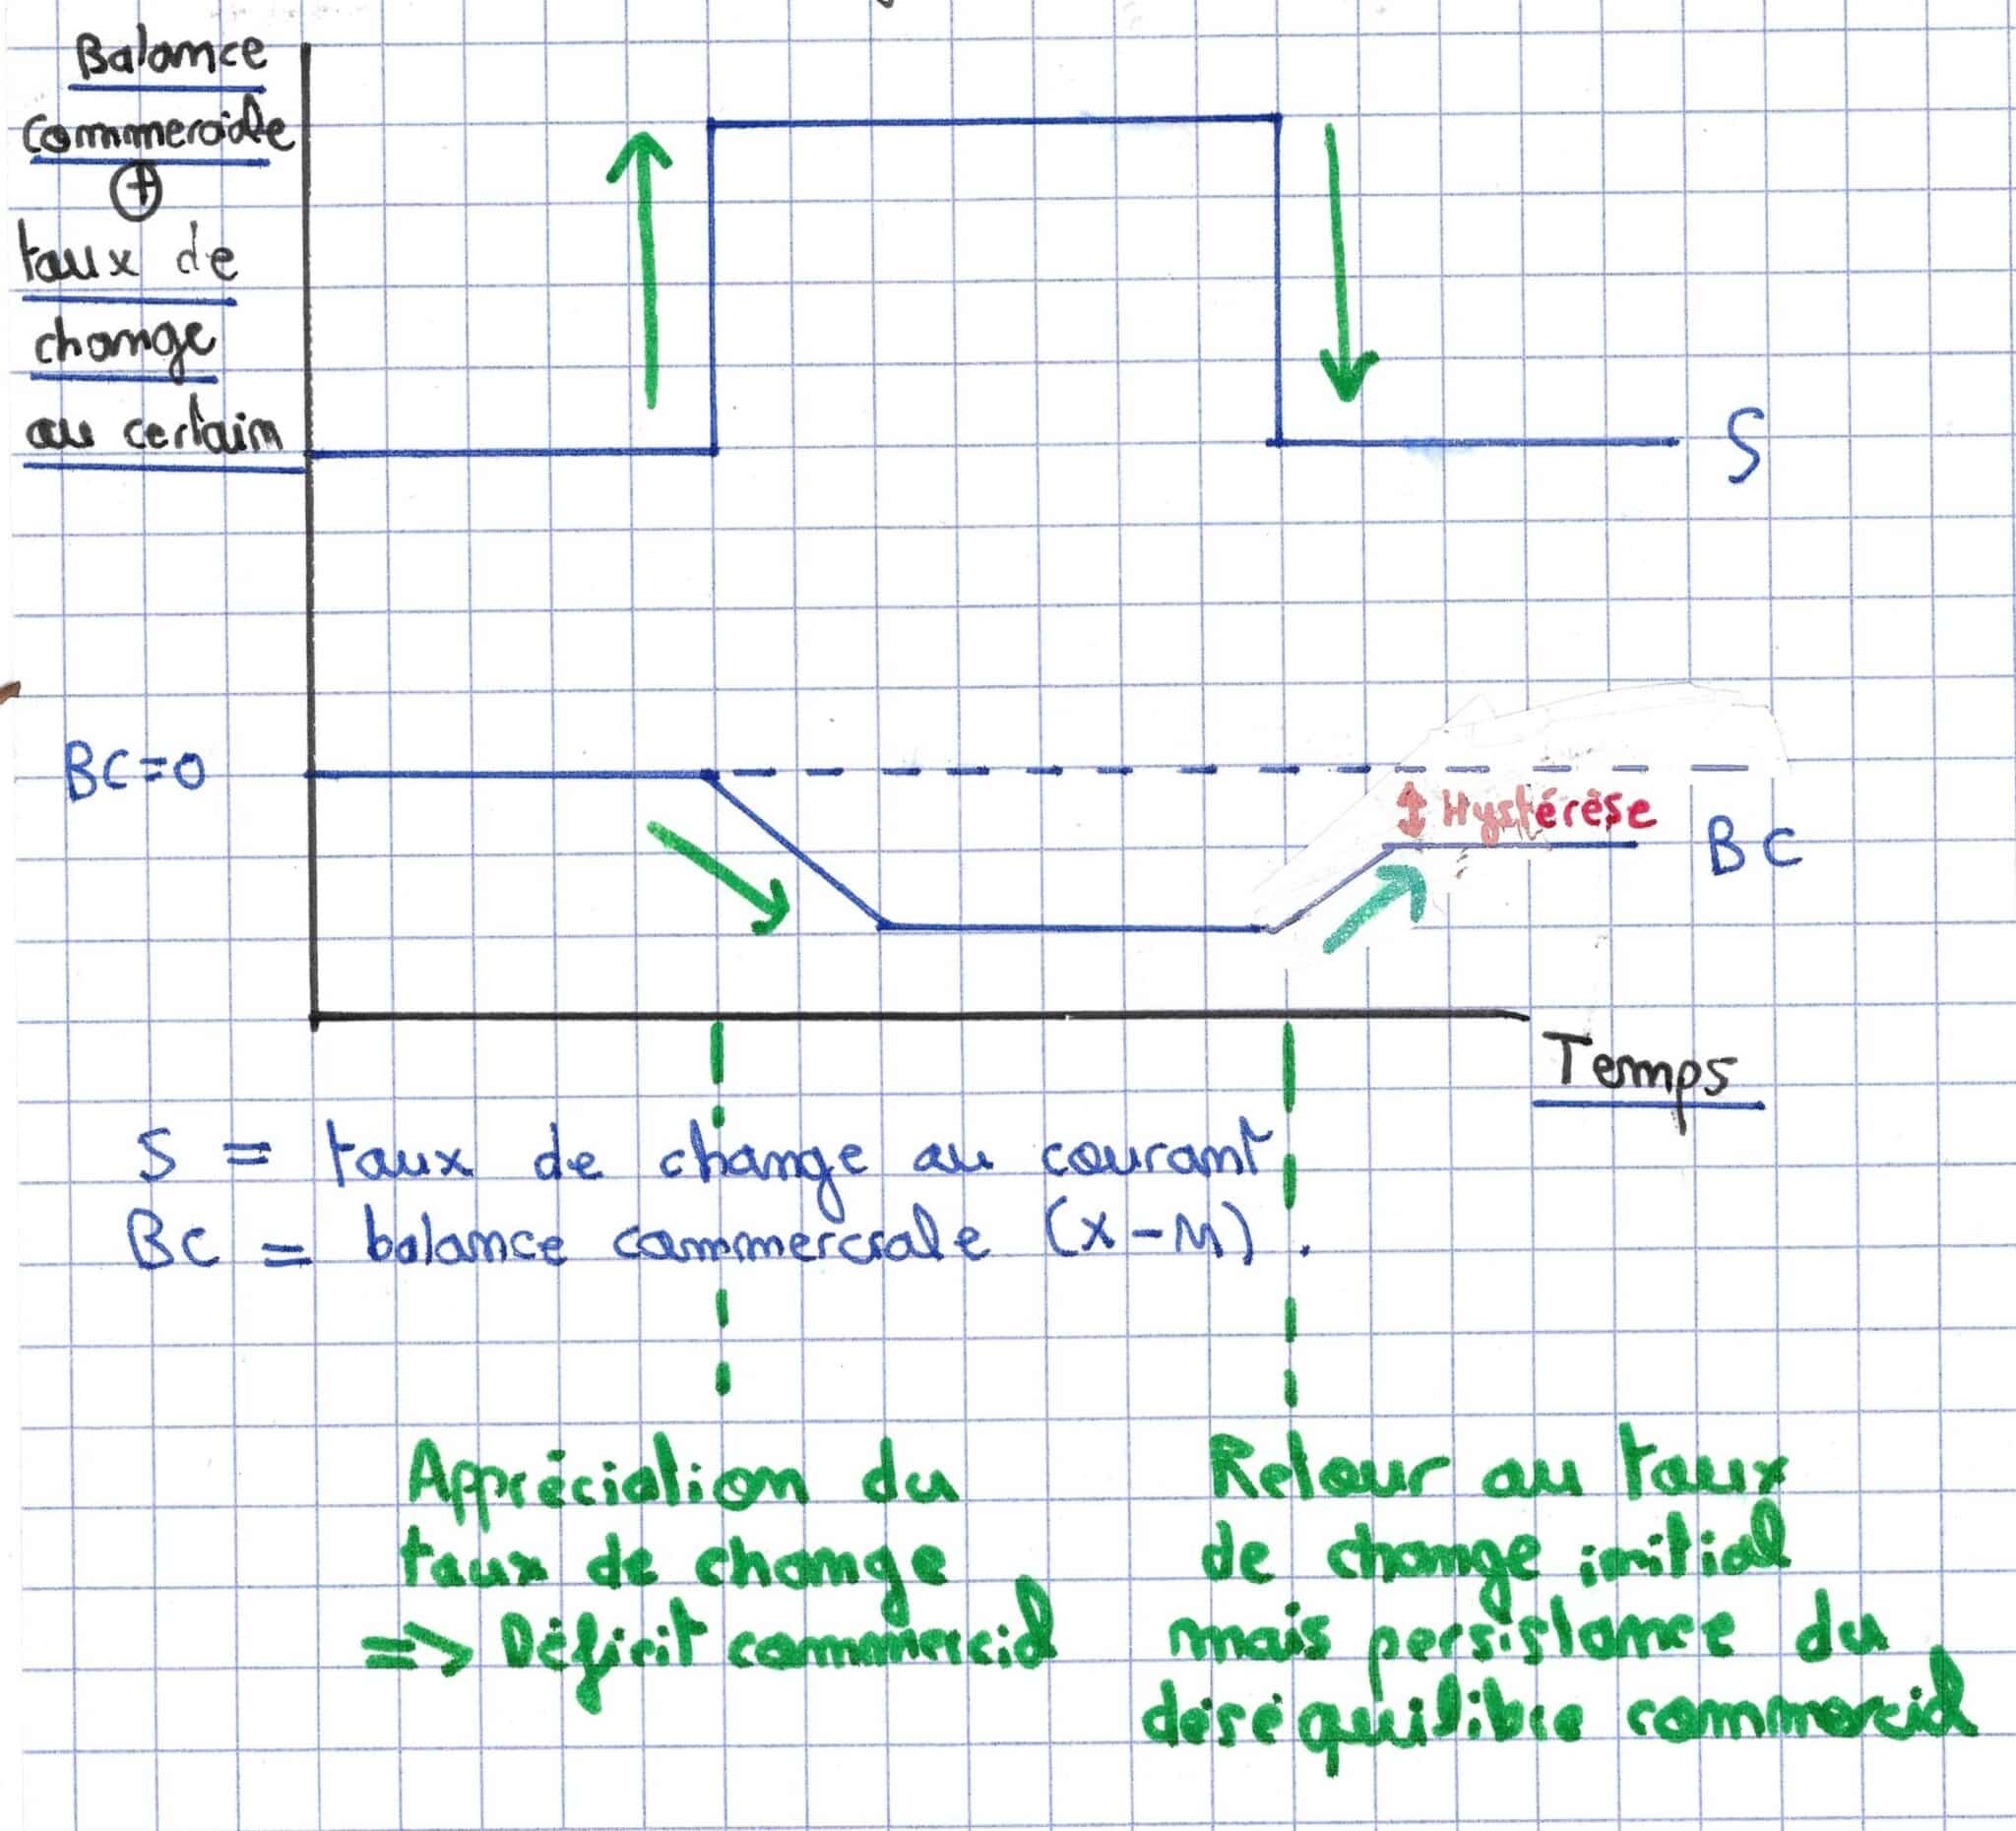 Balance
commerciale
⊕
taux de
change
au certain
S
BC=0
Hystérèse
BC
Temps
S = taux de change au courant
BC = balance commerciale (X-M).
Appréciation du
taux de change
=> Déficit commercial
Retour au taux
de change initial
mais persistance du
déséquilibre commercial